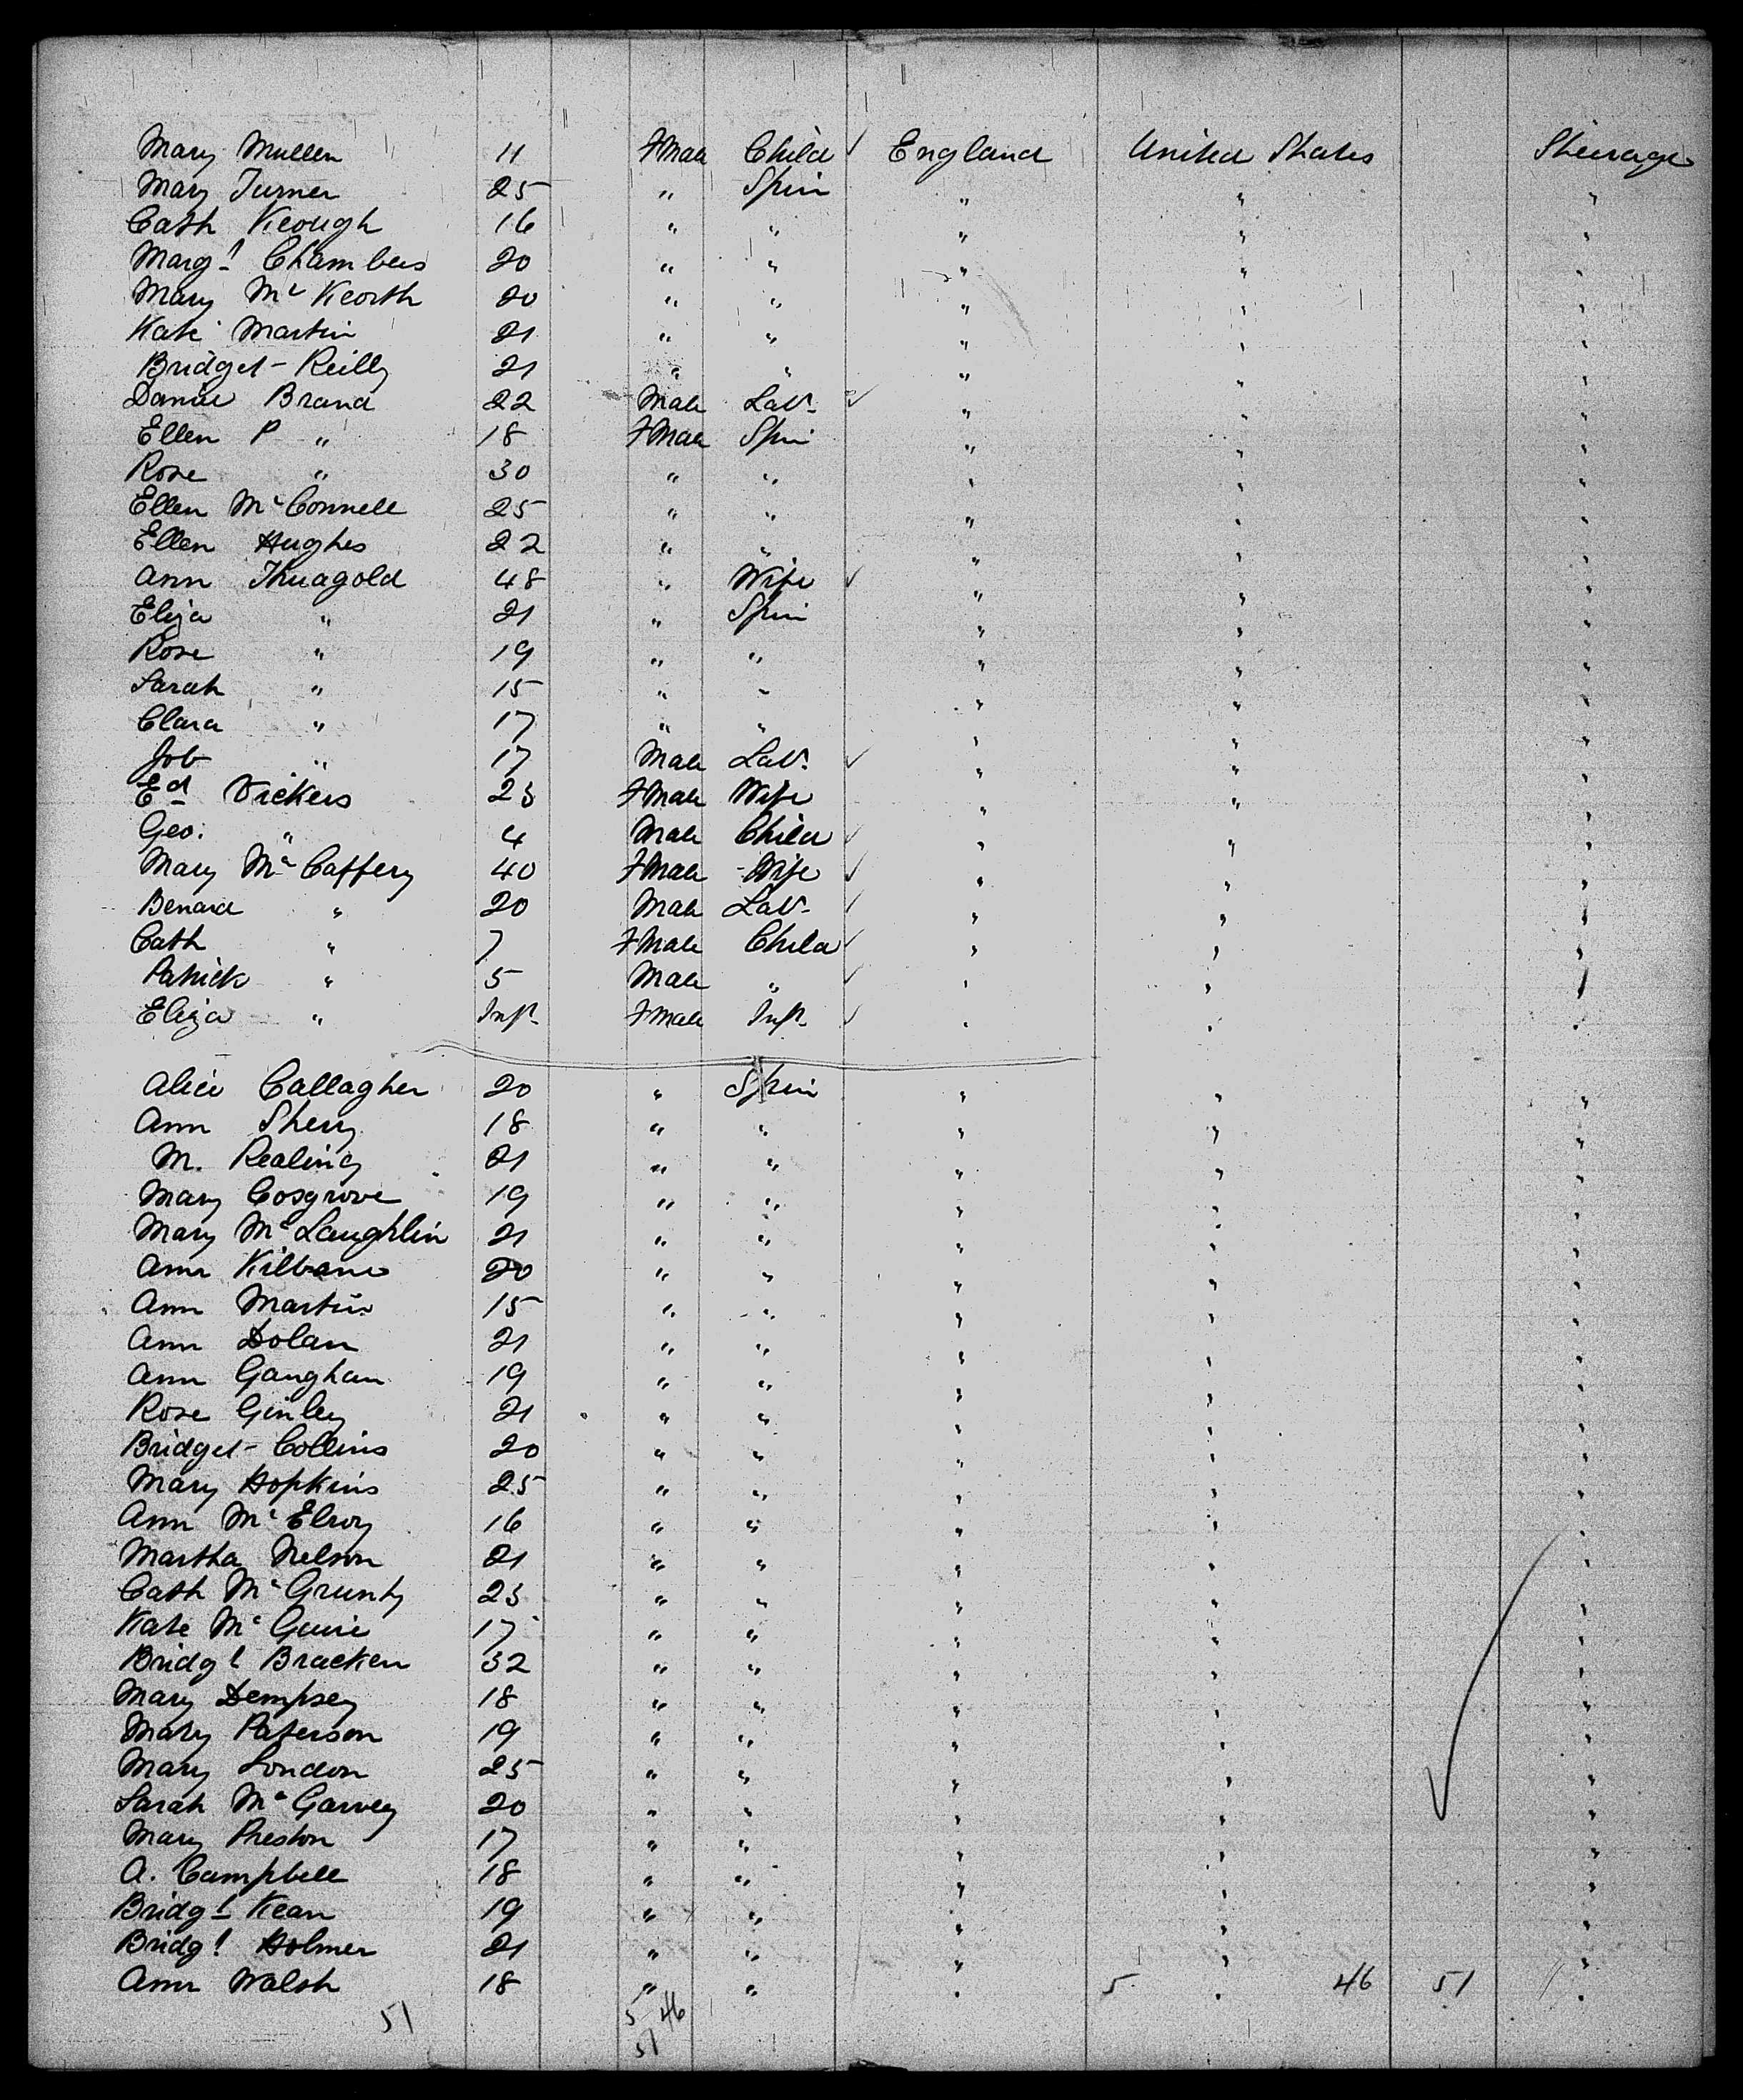 Mary Mullen 11 FMale Child ✓ England United States Steerage
Mary Turner 25 " Spin " " "
Cath Keough 16 " " " " "
Margt Chambers 20 " " " " "
Mary Mc Keorth 20 " " " " "
Kate Martin 21 " " " " "
Bridget Reilly 21 " " " " "
Daniel Brand 22 Male Lab. ✓ " " "
Ellen P " 18 FMale Spin " " "
Rose " 30 " " " " "
Ellen McConnell 25 " " " " "
Ellen Hughes 22 " " " " "
Ann Thuagold 48 " Wife ✓ " " "
Eliza " 21 " Spin " " "
Rose " 19 " " " " "
Sarah " 15 " " " " "
Clara " 17 " " " " "
Job " 17 Male Lab. ✓ " " "
Ed Vickers 23 FMale Wife " " "
Geo. " 4 Male Child ✓ " " "
Mary McCaffery 40 FMale Wife ✓ " " "
Benard " 20 Male Lab. ✓ " " "
Cath " 7 FMale Child ✓ " " "
Patrick " 5 Male " ✓ " " "
Eliza " Inft FMale Inft ✓ " " "
Alice Callagher 20 " Spin " " "
Ann Sherry 18 " " " " "
M. Realing 21 " " " " "
Mary Cosgrove 19 " " " " "
Mary McLaughlin 21 " " " " "
Ann Kilbane 20 " " " " "
Ann Martin 15 " " " " "
Ann Dolan 21 " " " " "
Ann Gaughan 19 " " " " "
Rose Ginley 21 " " " " "
Bridget Collins 20 " " " " "
Mary Hopkins 25 " " " " "
Ann McElroy 16 " " " " "
Martha Nelson 21 " " " " "
Cath McGrunty 23 " " " " "
Kate McGuire 17 " " " " "
Bridgt Bracken 32 " " " " "
Mary Dempsey 18 " " " " "
Mary Paterson 19 " " " " "
Mary London 25 " " " " "
Sarah McGarvey 20 " " " " "
Mary Preston 17 " " " " "
A. Campbell 18 " " " " "
Bridgt Kean 19 " " " " "
Bridgt Holmer 21 " " " " "
Ann Walsh 18 " " " 5 " 46 51 "
51 5 46
51